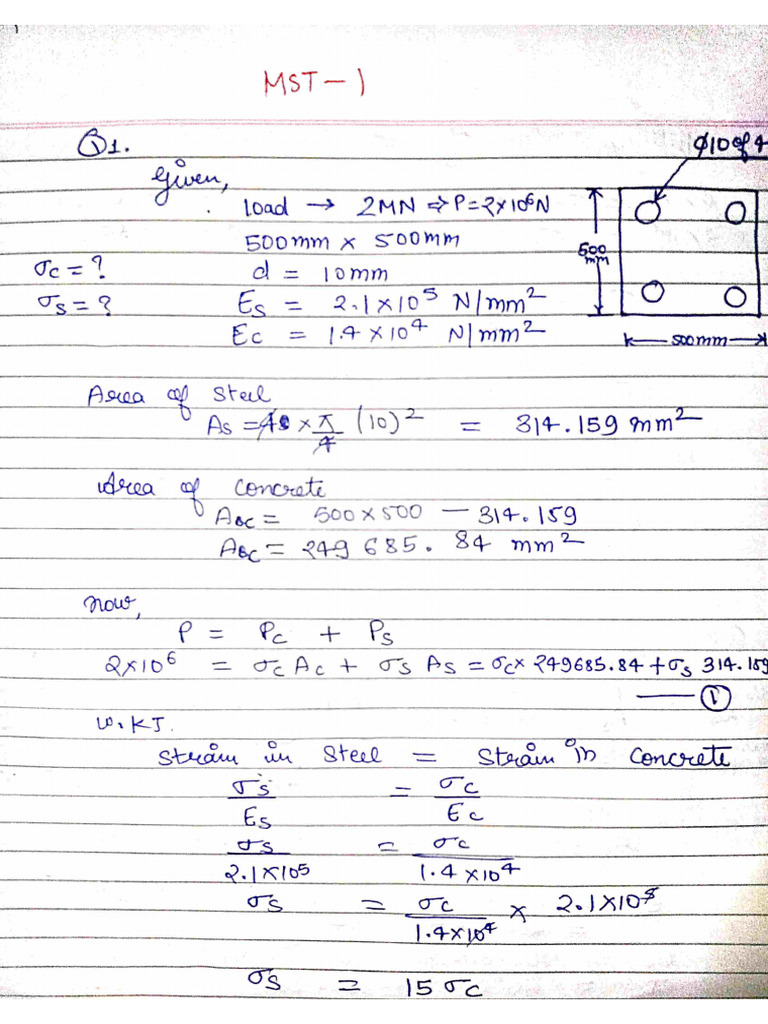 MST-1
Q1.
Given,
load → 2MN ⇒ P=2×10⁶N
500mm × 500mm
d = 10mm
σc = ?
σs = ?
Es = 2.1×10⁵ N/mm²
Ec = 1.4×10⁴ N/mm²
ϕ10 of 4
500
mm
500mm
Area of Steel
As = 4 × π/4 (10)² = 314.159 mm²
Area of Concrete
Ac = 500×500 — 314.159
Ac = 249 685.84 mm²
Now,
P = Pc + Ps
2×10⁶ = σc Ac + σs As = σc× 249685.84 + σs 314.159
— ①
W.K.T.
Strain in Steel = Strain in Concrete
σs/Es = σc/Ec
σs/2.1×10⁵ = σc/1.4×10⁴
σs = σc/1.4×10⁴ × 2.1×10⁵
σs = 15 σc